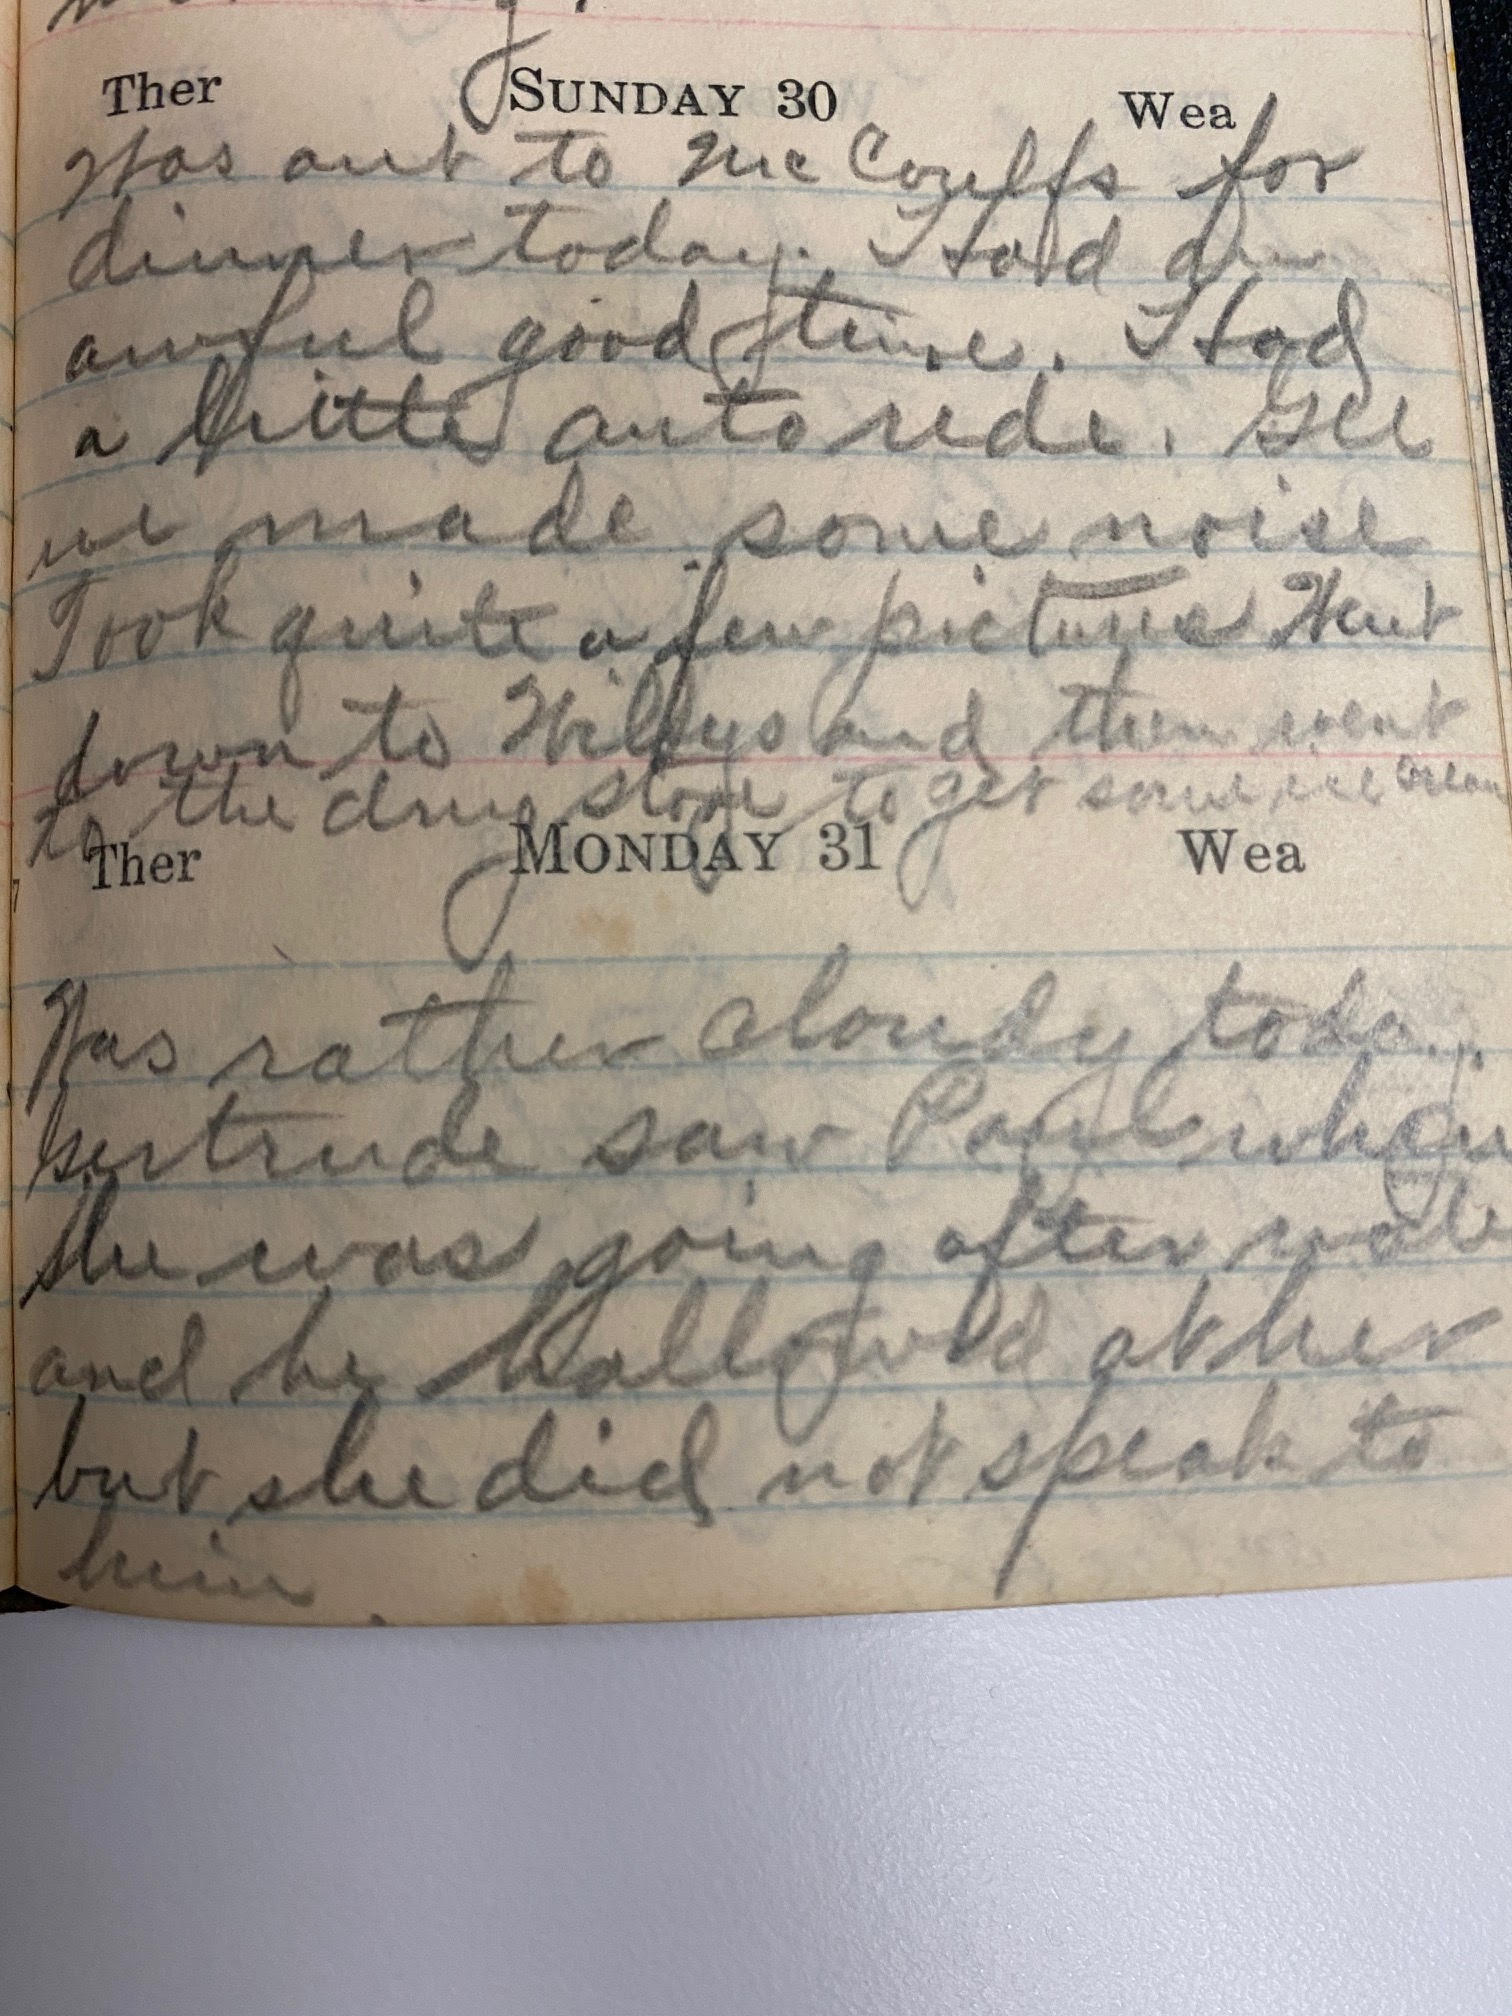 Ther SUNDAY 30 Wea
Was out to Mc for
dinner today. Had an
awful good time. Had
a little auto ride. Gee
we made some noise
Took quite a few pictures Went
down to and then went
to the drug store to get some ice cream
Ther MONDAY 31 Wea
Was rather cloudy today.
Gertrude saw Paul when
she was going after
and he hallowed at her
but she did not speak to
him.